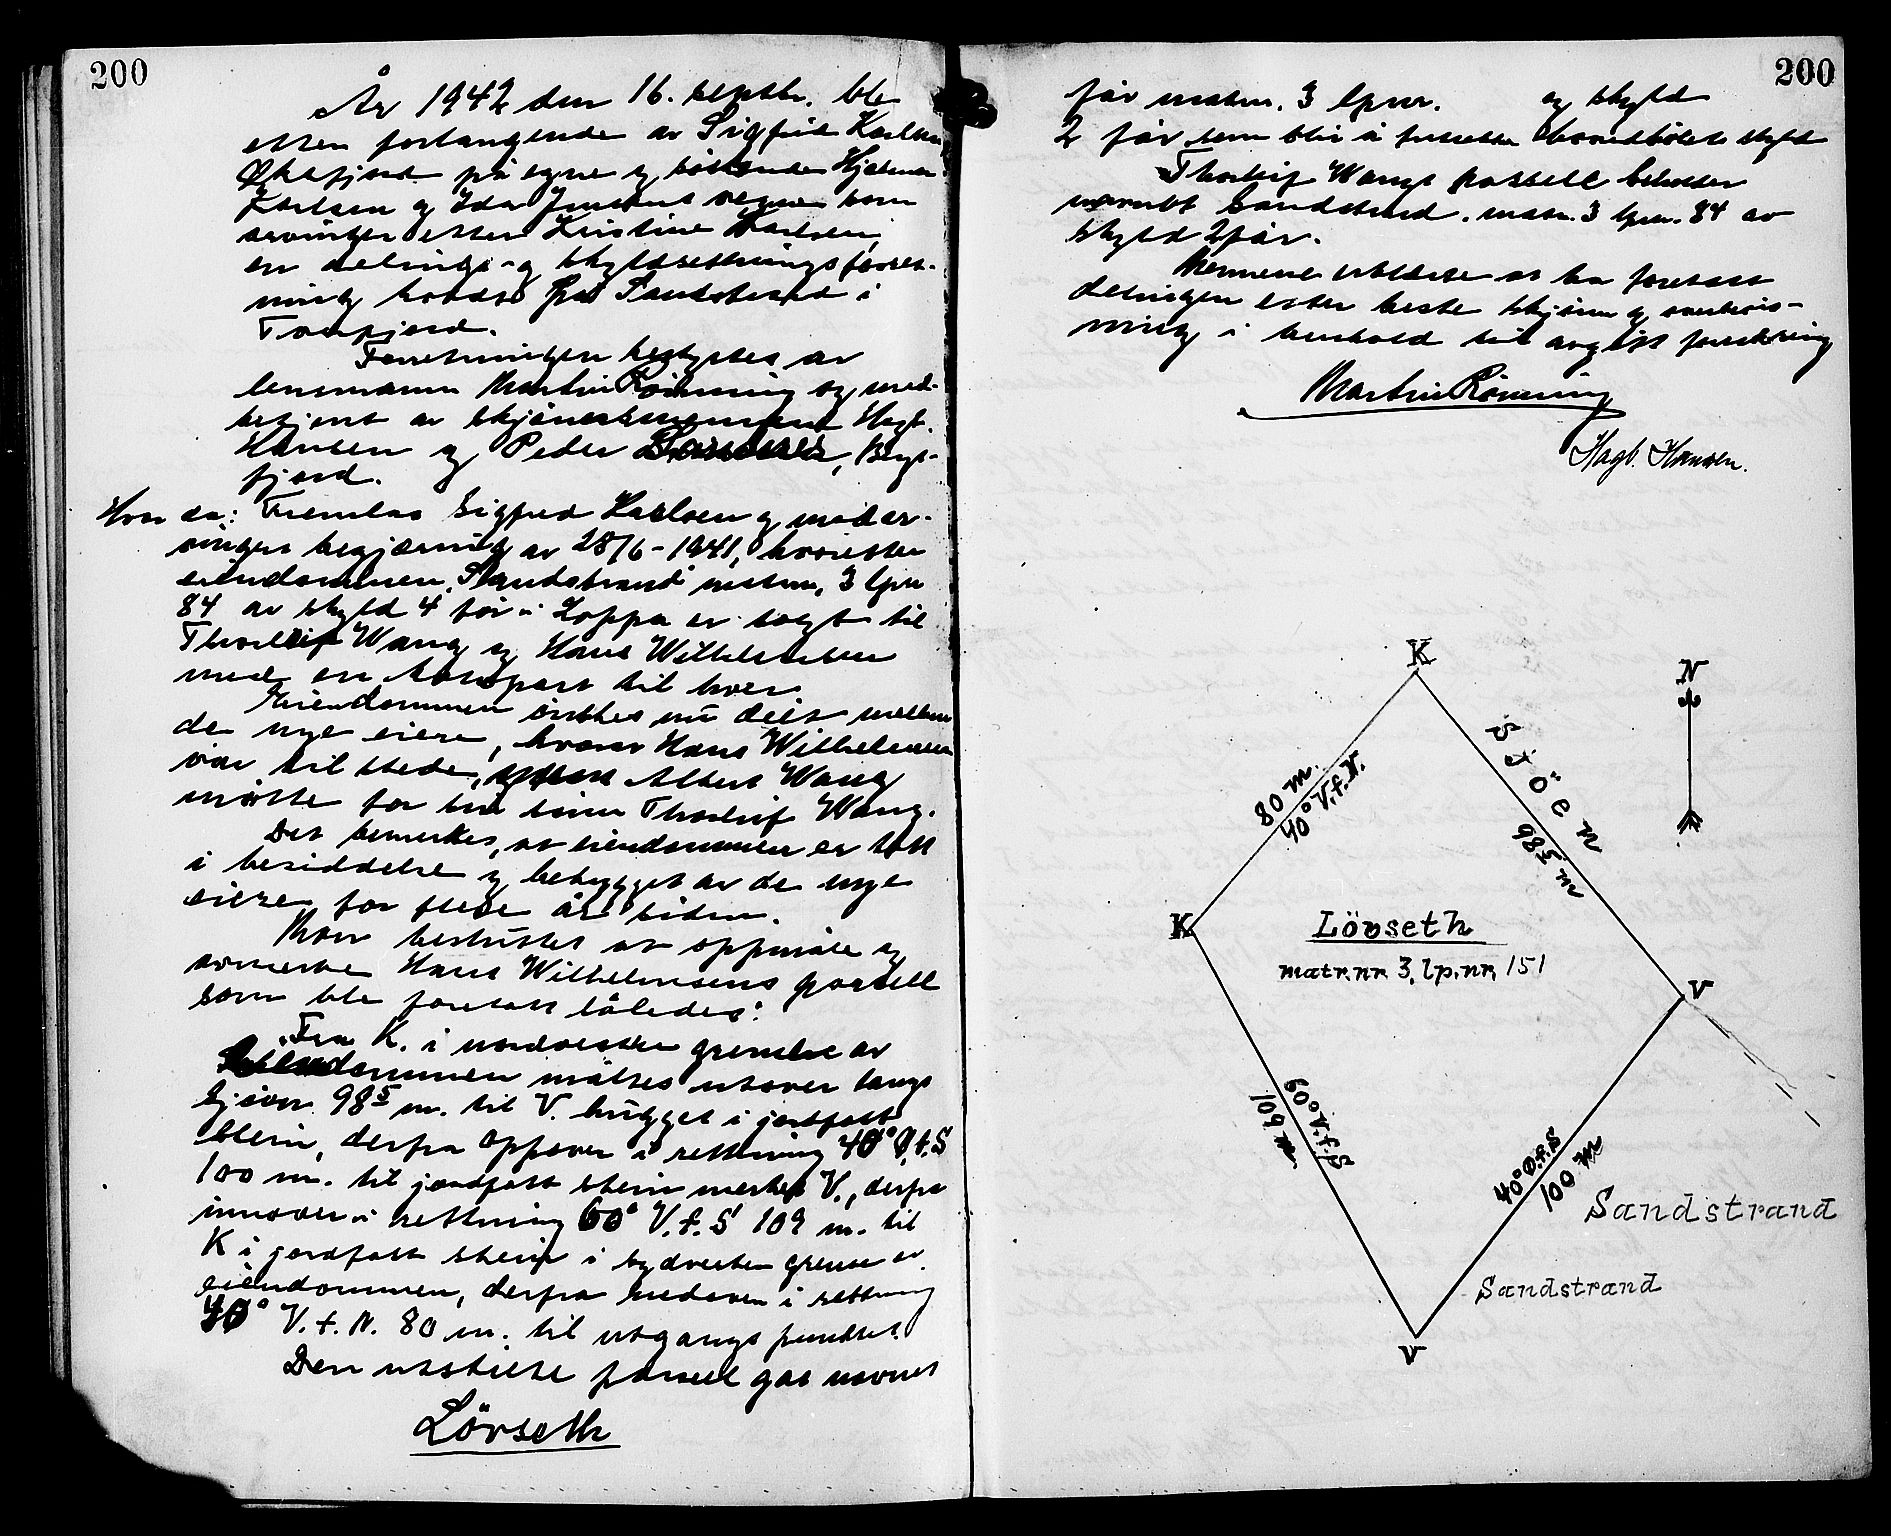 200
År 1942 den 16. septbr. ble
etter forlangende av Sigfrid Karlsen
Øksfjord på egne og søskende Hjalmar
Karlsen og Ida Jensens vegne som
arvinger etter Kristine Karlsen,
en delings- og skyldsettningsforret-
ning holdt på Sandstrand i
Tverfjord.
Forretningen bestyrtes av
lensmann Martin Rönning og med-
betjent av skjönnstnemnd Hagb.
Hansen og Peder, Bergs-
fjord.
Hvor da: Fremlas Sigfred Karlsen og medar-
vingers begjæring av 28/6-1941, hvoretter
eiendommen Sandstrand matrn. 3 lpnr
84 av skyld 4 før i Loppa er solgt til
Thorleif Wang og Hans Wilhelmsen
med en halvpart til hver.
Eiendommen önskes nu delt mellem
de nye eiere, hvorav Hans Wilhelmsen
var til stede, Albert Wang
mötte for sin sönn Thorleif Wang.
Det bemerkes, at eiendommen er tatt
i besiddelse og bebygget av de nye
eiere for flere år siden.
Man besluttet at oppmåle og
avmerke Hans Wilhelmsens parsell
som ble foretatt således:
Fra K. i nordvestre grense av
eiendommen måltes utover langs
sjöen 98⁵ m. til V. hugget i jordfast
stein, derfra oppover i rettning 40° Ö.f.S
100 m. til jordfast stein merket V., derfra
innover i rettning 60° V.f.S 109 m. til
K i jordfast stein i sydvestre grense av
eiendommen, derfra nedover i rettning
40° V.f.N. 80 m. til utgangspunktet.
Den utskilte parsell gas navnet
Lövseth
200
får matrn. 3 lpnr. og skyld
2 får som blir å fratrekke hovedbölets skyld
Thorleif Wangs parsell beholder
navnet Sandstrand. matr. 3 lpnr. 84 av
skyld 2 får.
Mennene erklærte at ha foretatt
delingen etter beste skjönn og overbevis-
ning i henhold til avgitt forsikring
Martin Rönning
Hagb. Hansen.
K
N
Sjöen
80 m.
40° V.f.N.
98⁵ m
K
Lövseth
matr.nr. 3, lp.nr. 151
V
109 m
60° V.f.S
40° Ö.f.S
100 m
Sandstrand
Sandstrand
V